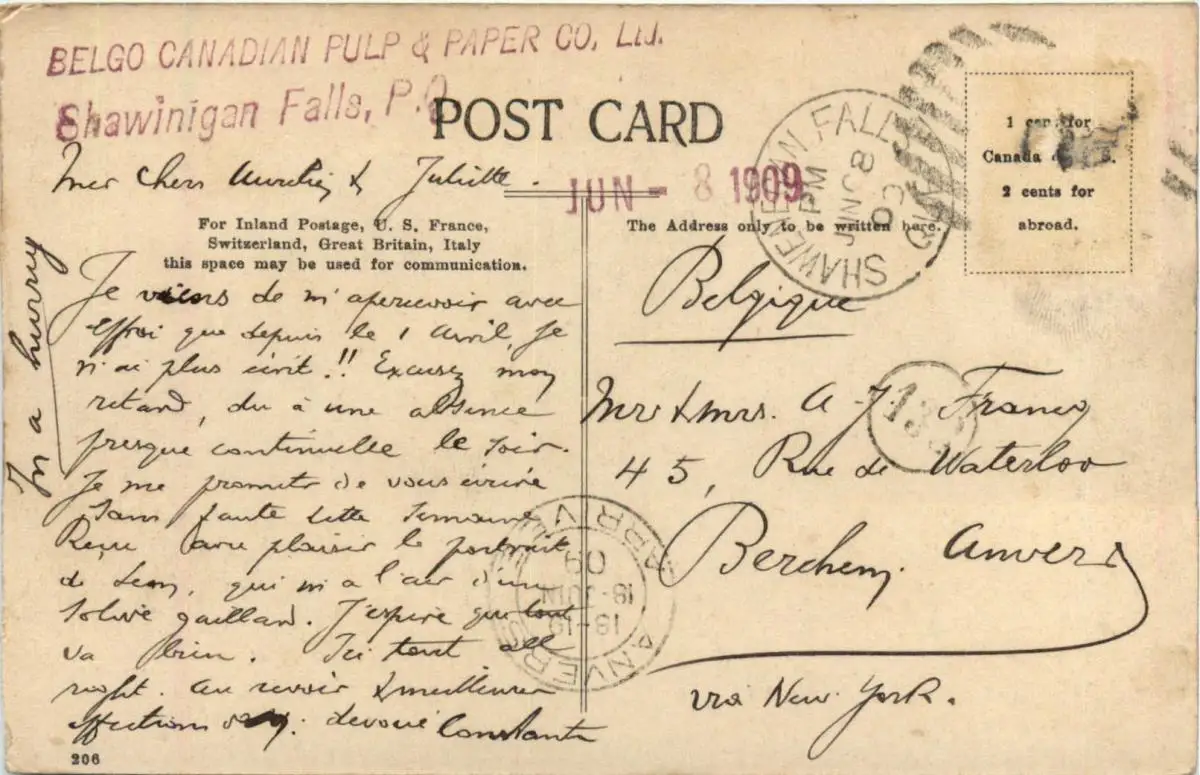 BELGO CANADIAN PULP & PAPER CO, Ltd.
Shawinigan Falls, P.Q
POST CARD
JUN - 8 1909
SHAWENEGAN FALLS
PM
JUN 8
09
1 cent for
Canada
2 cents for
abroad.
Mes Chers Aurélien & Juliette.
For Inland Postage, U. S. France,
Switzerland, Great Britain, Italy
this space may be used for communication.
The Address only to be written here.
In a hurry
Je viens de m'apercevoir avec
effroi que depuis le 1 avril, je
n'ai plus écrit!! Excusez mon
retard, du à une absence
presque continuelle le soir.
Je me promets de vous écrire
sans faute cette semaine
Reçu avec plaisir le portrait
de Leon, qui m'a l'air d'un
solide gaillard. J'espère que tout
va bien. Ici tout all
right. Au revoir & meilleures
affections. devoué Constant
Belgique
Mr & Mrs. A. J. Francq
45, Rue de Waterloo
Berchem. Anvers
via New York.
ANVERS
18-19
18 JUIN
09
ARRIV
206